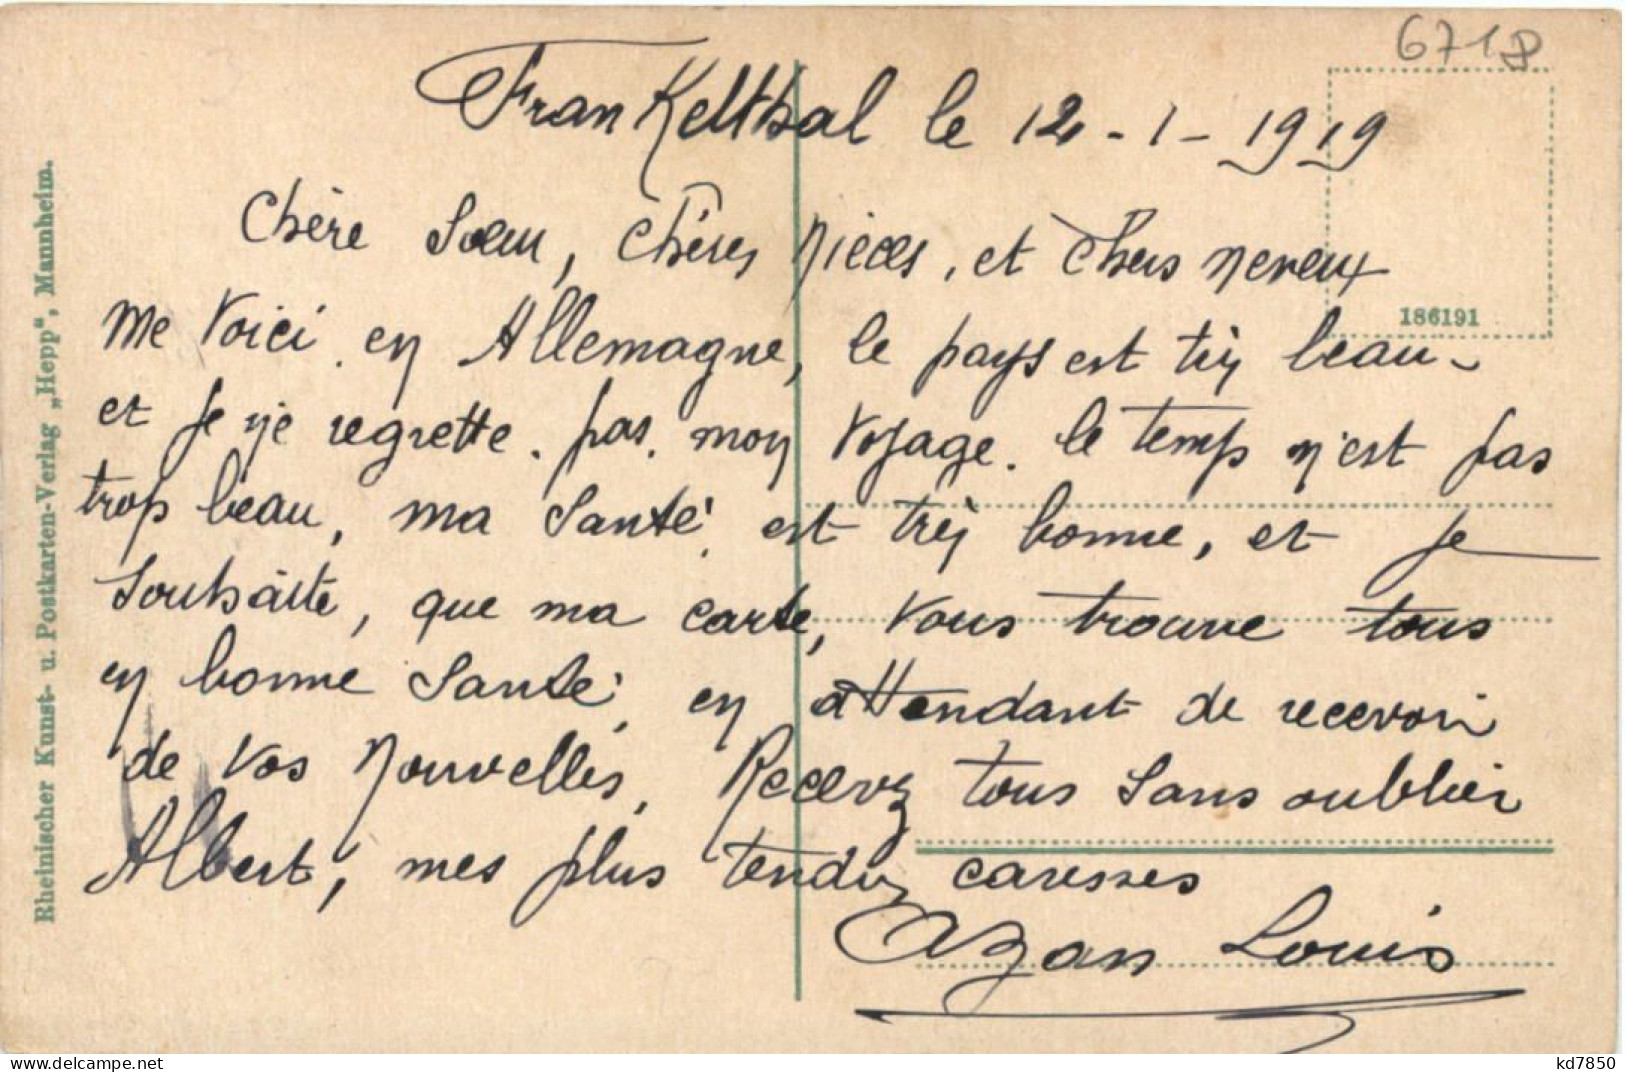 6718
Frankelthal le 12-1-1919
Chère Soeur, Chères Nièces, et Chers neveux
186191
me Voici en Allemagne, le pays est très beau-
et je ne regrette pas mon Voyage. le temps n'est pas
trop beau, ma Santé est très bonne, et je
Souhaite, que ma carte, Vous trouve tous
en bonne Santé, en attendant de recevoir
de Vos Nouvelles, Recevez tous Sans oublier
Albert, mes plus tendres caresses
Azan Louis
Rheinischer Kunst- u. Postkarten-Verlag „Hepp“, Mannheim.
kd7850